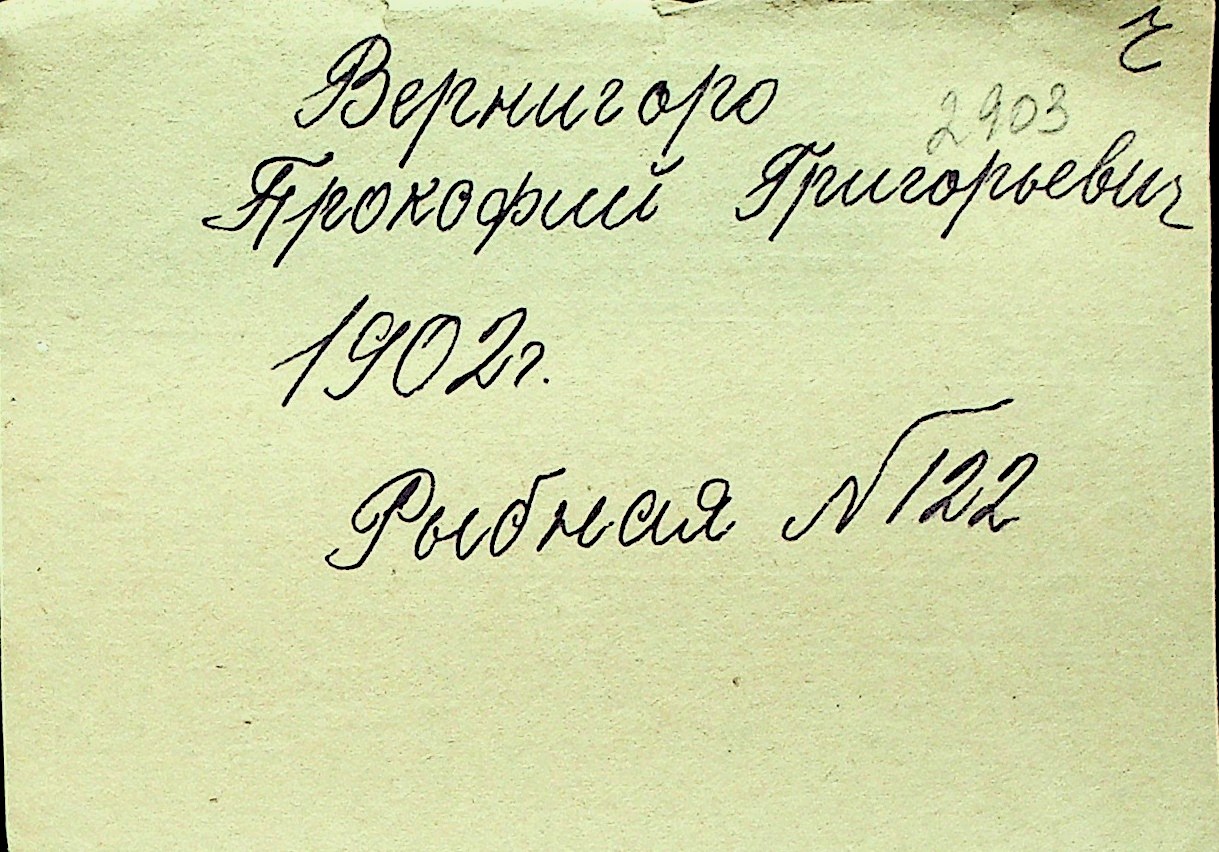 ч
Вернигоро
2903
Прокофий Григорьевич
1902г.
Рыбная №122